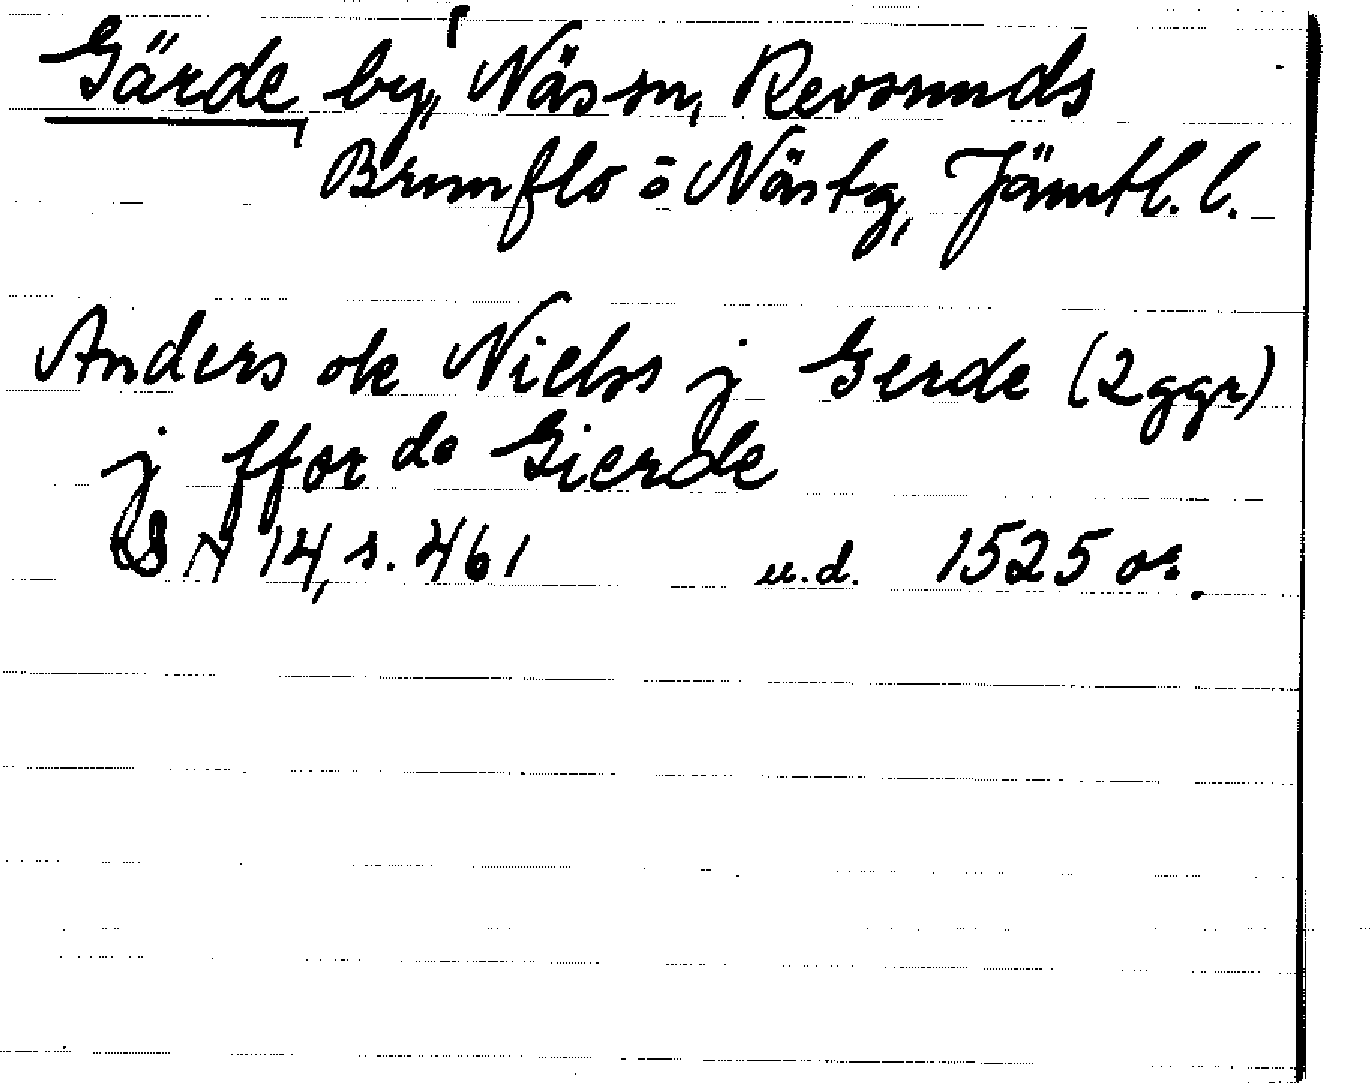 Gärde by, Näs sn, Revsunds
Brunflo o Näs tg, Jämtl. l.
Anders ok Nielss j Gerde (2 ggr)
j ffor de Gierde
DN 14, s. 461 u.d. 1525 or.